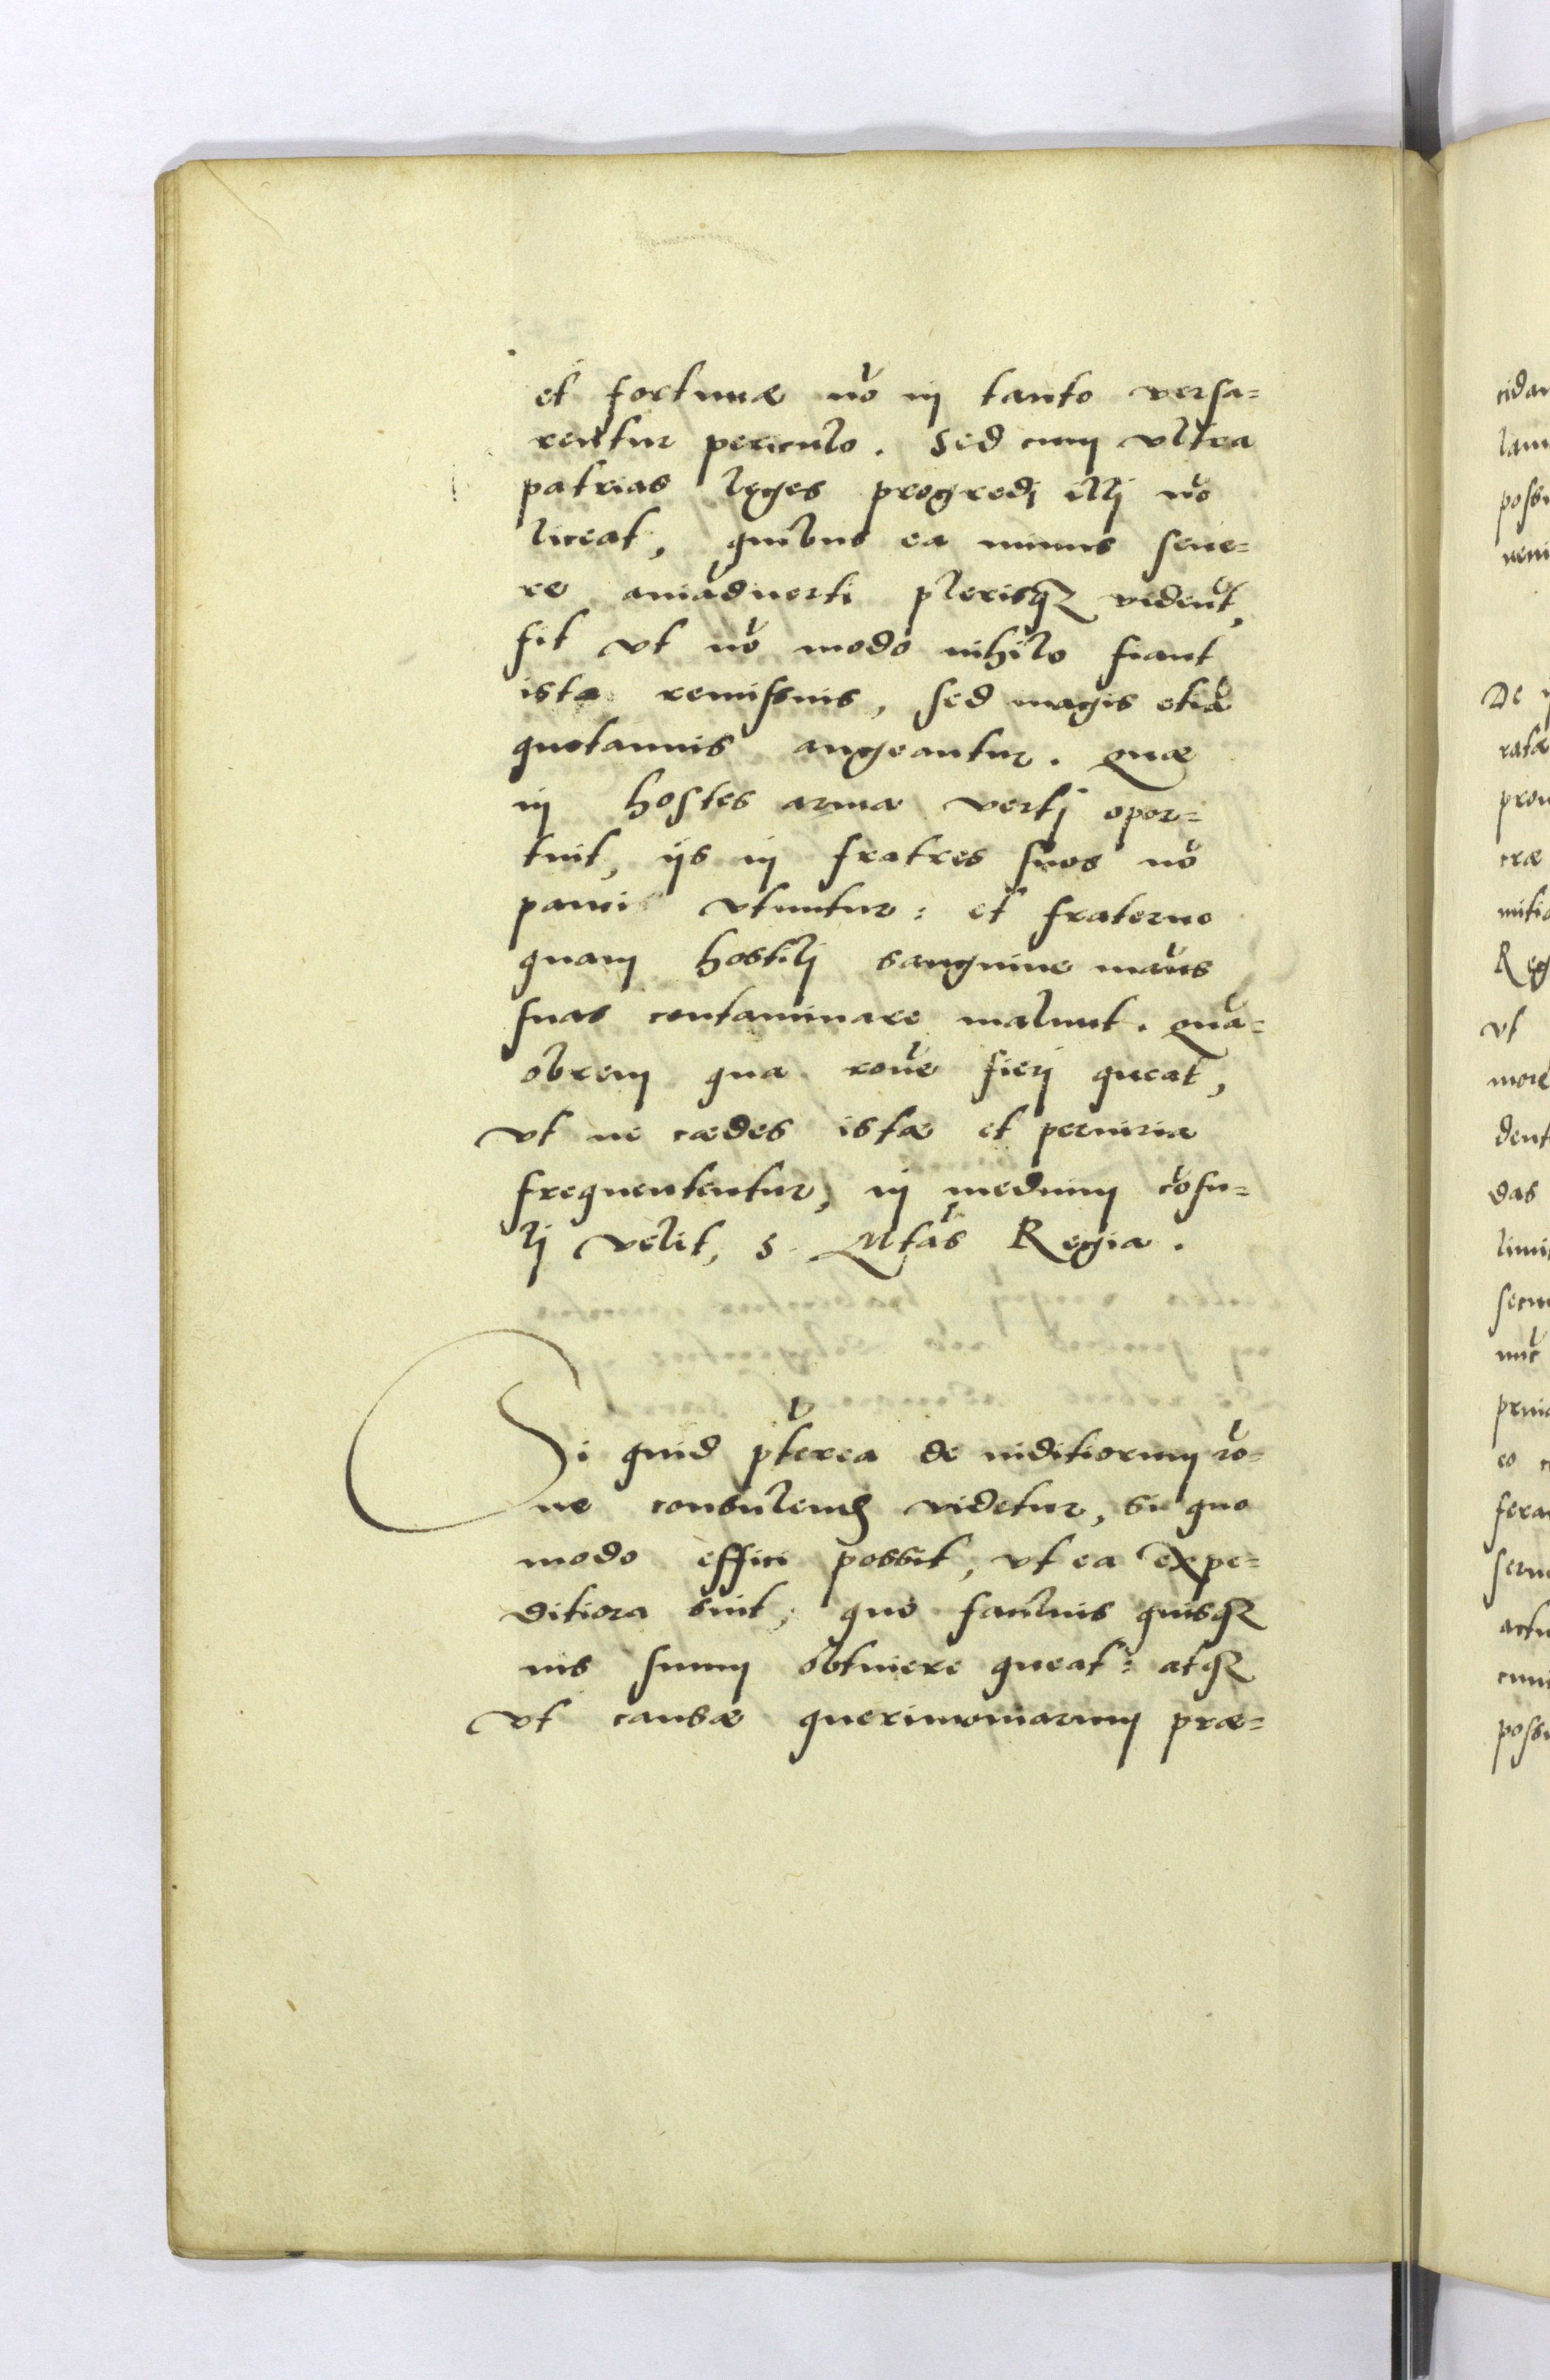 et fortunæ nõ in tanto versa=
rentur periculo. Sed cum vltra
patrias leges progredi illi nõ
liceat, quibus ea minus seue=
re aniãduerti plerisq₃ vident̃,
fit vt nõ modo nihilo fiant
ista remissius, sed magis etiã
quotannis augeantur. Quæ
in hostes arma verti opor=
tuit, ijs in fratres suos nõ
pauci vtuntur: et fraterno
quam hostili sanguine manus
suas contaminare malunt. Quã=
obrem qua rone fieri queat,
vt ne cædes istæ et pernicia
frequententur, in medium cõsu=
li velit, S. Mtas Regia.
Si quid pterea de iuditiorum rõ=
ne consulend videtur, si quo
modo effici possit, vt ea expe=
ditiora sint, quo facilius quisq₃
ius suum obtinere queat: atq₃
vt causæ querimoniarum præ=
cidan
lam
possi
ueni
De
rata
prou
cræ
mitio
Reg
vt
more
dent
das
limit
secu
nuc
prui
eo
fera
seru
actu
cum
possi